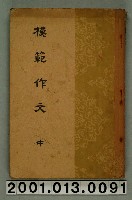 模範作文
中
2001.013.0091